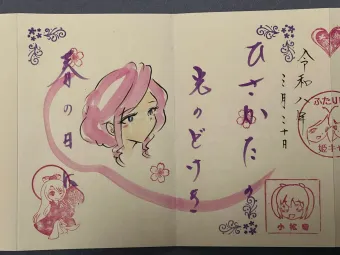 令和八年
三月二十日
ひさかたの
光のどけき
春の日に
ふたり
姫キャ
小松姫